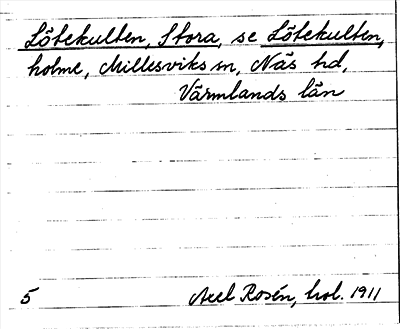 Lötekulten, Stora, se Lötekulten,
holme, Millesviks sn, Näs hd,
Värmlands län
5 Axel Rosén, hol. 1911